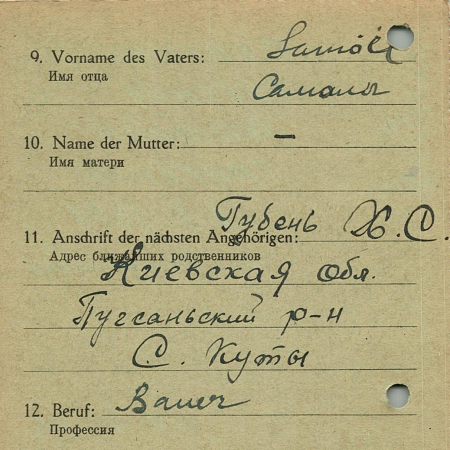 9. Vorname des Vaters: Samoil
Имя отца
Самоил
10. Name der Mutter: –
Имя матери
Губень Х. С.
11. Anschrift der nächsten Angehörigen:
Адрес ближайших родственников
Киевская обл.
р-н
С. Куты
12. Beruf: Bauer
Профессия